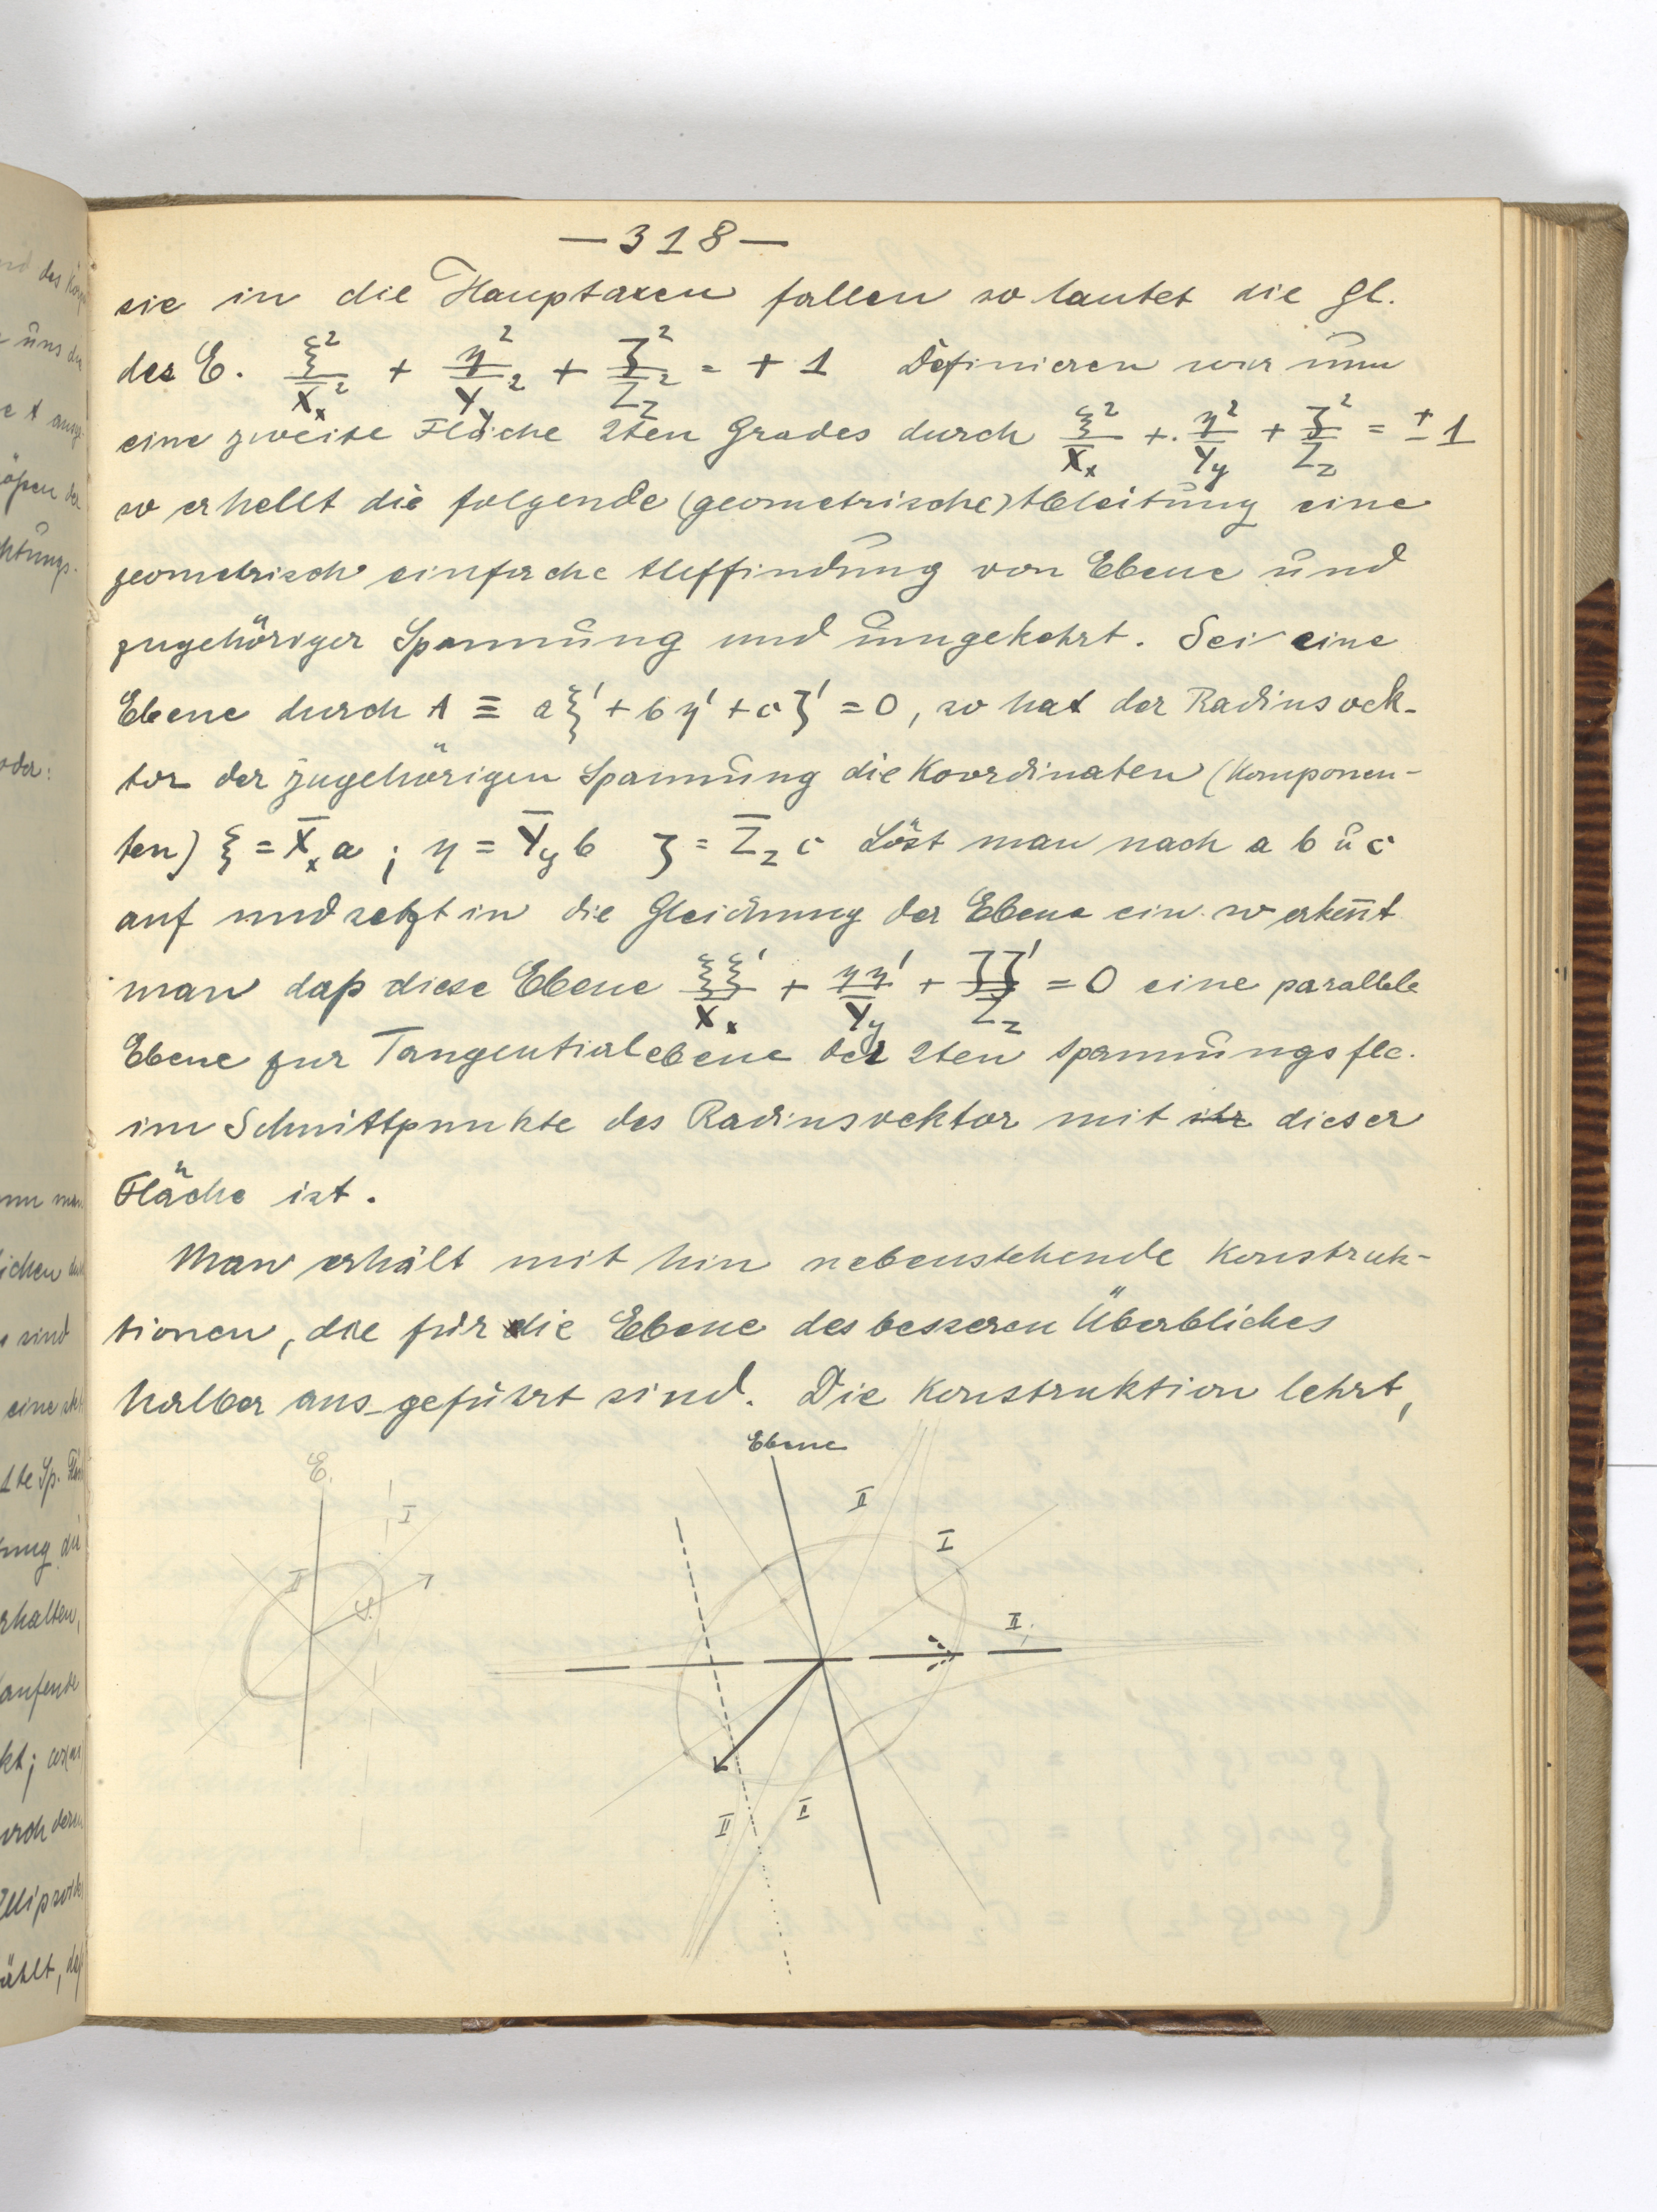 —318—
sie in die Hauptaxen fallen so lautet die Gl.
des E. ξ²/X̄ₓ² + η²/Ȳᵧ² + ζ²/Z̄_z² = + 1 Definieren wir nun
eine zweite Fläche 2ten Grades durch ξ²/X̄ₓ + η²/Ȳᵧ + ζ²/Z̄_z = ± 1
so erhellt die folgende (geometrische) Ableitung eine
geometrisch einfache Auffindung von Ebene und
zugehöriger Spannung und umgekehrt. Sei eine
Ebene durch A ≡ aξ' + bη' + cζ' = 0, so hat der Radiusvek-
tor der zugehörigen Spannung die Koordinaten (Komponen-
ten) ξ = X̄ₓa ; η = Ȳᵧb ζ = Z̄_z c Löst man nach a b u c
auf und setzt in die Gleichung der Ebene ein so erken̄t
man daß diese Ebene ξξ'/X̄ₓ + ηη'/Ȳᵧ + ζζ'/Z̄_z = 0 eine parallele
Ebene zur Tangentialebene der 2ten Spannungsflc.
im Schnittpunkte des Radiusvektor mit ihr dieser
Fläche ist.
Man erhält mit hin nebenstehende Konstruk-
tionen, die für die Ebene des besseren Überbliches
halber aus-geführt sind. Die Konstruktion lehrt,
Ebene
E.
I
II
II
I
II
II
I